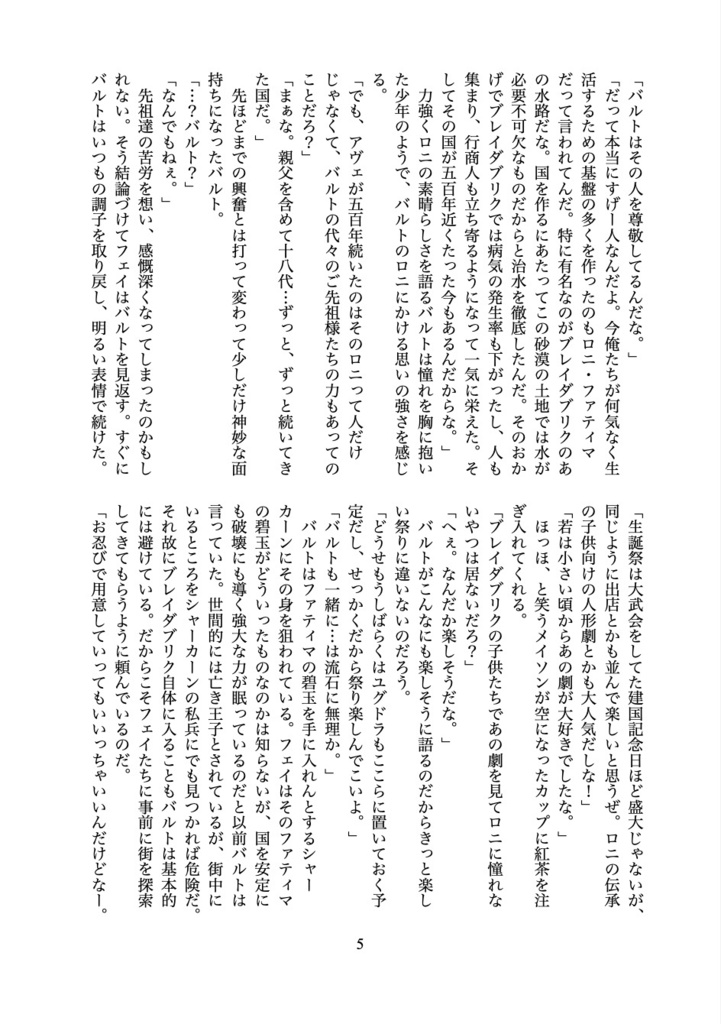 「バルトはその人を尊敬してるんだな。」
「だって本当にすげー人なんだよ。今俺たちが何気なく生
活するための基盤の多くを作ったのもロニ・ファティマ
だって言われてんだ。特に有名なのがブレイダブリクのあ
の水路だな。国を作るにあたってこの砂漠の土地では水が
必要不可欠なものだからと治水を徹底したんだ。そのおか
げでブレイダブリクでは病気の発生率も下がったし、人も
集まり、行商人も立ち寄るようになって一気に栄えた。そ
してその国が五百年近くたった今もあるんだからな。」
力強くロニの素晴らしさを語るバルトは憧れを胸に抱い
た少年のようで、バルトのロニにかける思いの強さを感じ
る。
「でも、アヴェが五百年続いたのはそのロニって人だけ
じゃなくて、バルトの代々のご先祖様たちの力もあっての
ことだろ？」
「まぁな。親父を含めて十八代…ずっと、ずっと続いてき
た国だ。」
先ほどまでの興奮とは打って変わって少しだけ神妙な面
持ちになったバルト。
「…？バルト？」
「なんでもねぇ。」
先祖達の苦労を想い、感慨深くなってしまったのかもし
れない。そう結論づけてフェイはバルトを見返す。すぐに
バルトはいつもの調子を取り戻し、明るい表情で続けた。
「生誕祭は大武会をしてた建国記念日ほど盛大じゃないが、
同じように出店とかも並んで楽しいと思うぜ。ロニの伝承
の子供向けの人形劇とかも大人気だしな！」
「若は小さい頃からあの劇が大好きでしたな。」
ほっほ、と笑うメイソンが空になったカップに紅茶を注
ぎ入れてくれる。
「ブレイダブリクの子供たちであの劇を見てロニに憧れな
いやつは居ないだろ？」
「へぇ。なんだか楽しそうだな。」
バルトがこんなにも楽しそうに語るのだからきっと楽し
い祭りに違いないのだろう。
「どうせもうしばらくはユグドラもここらに置いておく予
定だし、せっかくだから祭り楽しんでこいよ。」
「バルトも一緒に…は流石に無理か。」
バルトはファティマの碧玉を手に入れんとするシャー
カーンにその身を狙われている。フェイはそのファティマ
の碧玉がどういったものなのかは知らないが、国を安定に
も破壊にも導く強大な力が眠っているのだと以前バルトは
言っていた。世間的には亡き王子とされているが、街中に
いるところをシャーカーンの私兵にでも見つかれば危険だ。
それ故にブレイダブリク自体に入ることもバルトは基本的
には避けている。だからこそフェイたちに事前に街を探索
してきてもらうように頼んでいるのだ。
「お忍びで用意していってもいいっちゃいいんだけどなー。
5